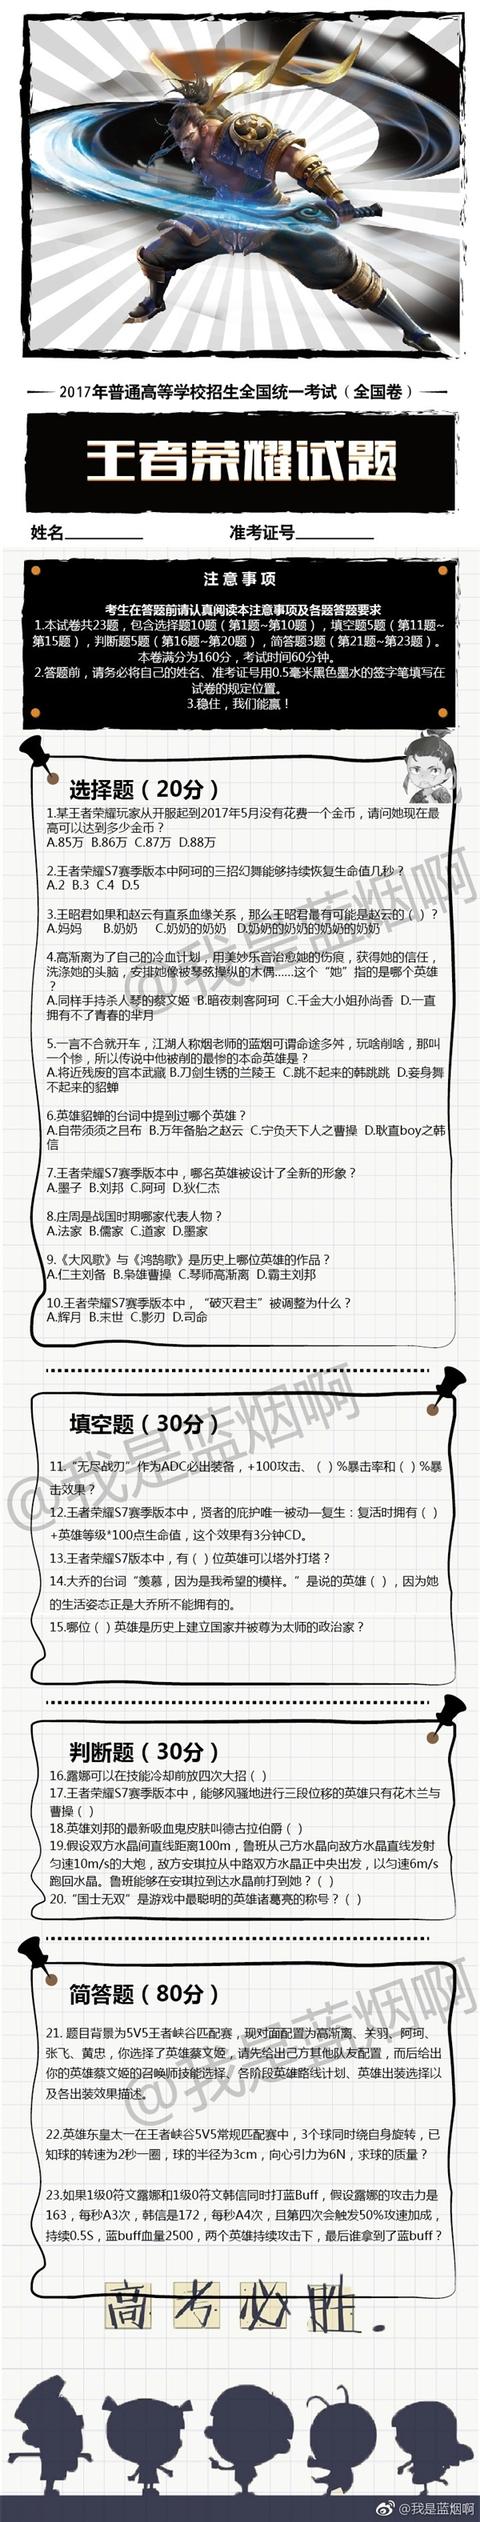 2017年普通高等学校招生全国统一考试（全国卷）
王者荣耀试题
姓名________ 准考证号________
注意事项
考生在答题前请认真阅读本注意事项及各题答题要求
1.本试卷共23题，包含选择题10题（第1题~第10题），填空题5题（第11题~
第15题），判断题5题（第16题~第20题），简答题3题（第21题~第23题）。
本卷满分为160分，考试时间60分钟。
2.答题前，请务必将自己的姓名、准考证号用0.5毫米黑色墨水的签字笔填写在
试卷的规定位置。
3.稳住，我们能赢！
选择题（20分）
1.某王者荣耀玩家从开服起到2017年5月没有花费一个金币，请问她现在最
高可以达到多少金币？
A.85万 B.86万 C.87万 D.88万
2.王者荣耀S7赛季版本中阿珂的三招幻舞能够持续恢复生命值几秒？
A.2 B.3 C.4 D.5
3.王昭君如果和赵云有直系血缘关系，那么王昭君最有可能是赵云的（ ）？
A.妈妈 B.奶奶 C.奶奶的奶奶 D.奶奶的奶奶的奶奶的奶奶
4.高渐离为了自己的冷血计划，用美妙乐音治愈她的伤痕，获得她的信任，
洗涤她的头脑，安排她像被琴弦操纵的木偶……这个“她”指的是哪个英雄
？
A.同样手持杀人琴的蔡文姬 B.暗夜刺客阿珂 C.千金大小姐孙尚香 D.一直
拥有不了青春的芈月
5.一言不合就开车，江湖人称烟老师的蓝烟可谓命途多舛，玩啥削啥，那叫
一个惨，所以传说中他被削的最惨的本命英雄是？
A.将近残废的宫本武藏 B.刀剑生锈的兰陵王 C.跳不起来的韩跳跳 D.妾身舞
不起来的貂蝉
6.英雄貂蝉的台词中提到过哪个英雄？
A.自带须须之吕布 B.万年备胎之赵云 C.宁负天下人之曹操 D.耿直boy之韩
信
7.王者荣耀S7赛季版本中，哪名英雄被设计了全新的形象？
A.墨子 B.刘邦 C.阿珂 D.狄仁杰
8.庄周是战国时期哪家代表人物？
A.法家 B.儒家 C.道家 D.墨家
9.《大风歌》与《鸿鹄歌》是历史上哪位英雄的作品？
A.仁主刘备 B.枭雄曹操 C.琴师高渐离 D.霸主刘邦
10.王者荣耀S7赛季版本中，“破灭君主”被调整为什么？
A.辉月 B.末世 C.影刃 D.司命
填空题（30分）
11.“无尽战刃”作为ADC必出装备，+100攻击、（ ）%暴击率和（ ）%暴
击效果？
12.王者荣耀S7赛季版本中，贤者的庇护唯一被动—复生：复活时拥有（ ）
+英雄等级*100点生命值，这个效果有3分钟CD。
13.王者荣耀S7版本中，有（ ）位英雄可以塔外打塔？
14.大乔的台词“羡慕，因为是我希望的模样。”是说的英雄（ ），因为她
的生活姿态正是大乔所不能拥有的。
15.哪位（ ）英雄是历史上建立国家并被尊为太师的政治家？
判断题（30分）
16.露娜可以在技能冷却前放四次大招（ ）
17.王者荣耀S7赛季版本中，能够风骚地进行三段位移的英雄只有花木兰与
曹操（ ）
18.英雄刘邦的最新吸血鬼皮肤叫德古拉伯爵（ ）
19.假设双方水晶间直线距离100m，鲁班从己方水晶向敌方水晶直线发射
匀速10m/s的大炮，敌方安琪拉从中路双方水晶正中央出发，以匀速6m/s
跑回水晶。鲁班能够在安琪拉到达水晶前打到她？（ ）
20.“国士无双”是游戏中最聪明的英雄诸葛亮的称号？（ ）
简答题（80分）
21.题目背景为5V5王者峡谷匹配赛，现对面配置为高渐离、关羽、阿珂、
张飞、黄忠，你选择了英雄蔡文姬，请先给出己方其他队友配置，而后给出
你的英雄蔡文姬的召唤师技能选择、各阶段英雄路线计划、英雄出装选择以
及各出装效果描述。
22.英雄东皇太一在王者峡谷5V5常规匹配赛中，3个球同时绕自身旋转，已
知球的转速为2秒一圈，球的半径为3cm，向心引力为6N，求球的质量？
23.如果1级0符文露娜和1级0符文韩信同时打蓝Buff，假设露娜的攻击力是
163，每秒A3次，韩信是172，每秒A4次，且第四次会触发50%攻速加成，
持续0.5S，蓝buff血量2500，两个英雄持续攻击下，最后谁拿到了蓝buff？
高考必胜.
@我是蓝烟啊
@我是蓝烟啊
@我是蓝烟啊
@我是蓝烟啊